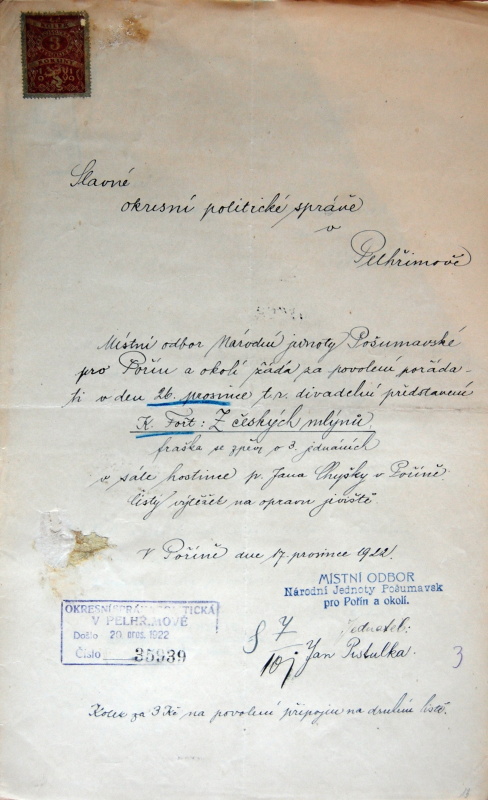 3
1919
Slavné
okresní politické správě
v
Pelhřimově
Místní odbor Národní jednoty Pošumavské
pro Pořín a okolí žádá za povolení pořáda-
ti v den 26. prosince t.r. divadelní představení
K. Fořt: Z českých mlýnů
fraška se zpěvy o 3. jednáních
v sále hostince p. Jana Chyšky v Poříně.
Čistý výtěžek na opravu jeviště
V Poříně dne 17. prosince 1922.
MÍSTNÍ ODBOR
Národní Jednoty Pošumavsk
pro Pořín a okolí.
OKRESNÍ SPRÁVA POLITICKÁ
V PELHŘIMOVĚ
Došlo 20 pros. 1922
Číslo 35939
§ 7
Jednatel:
Jan
3
Kolek za 3 Kč na povolení připojen na druhém listě.